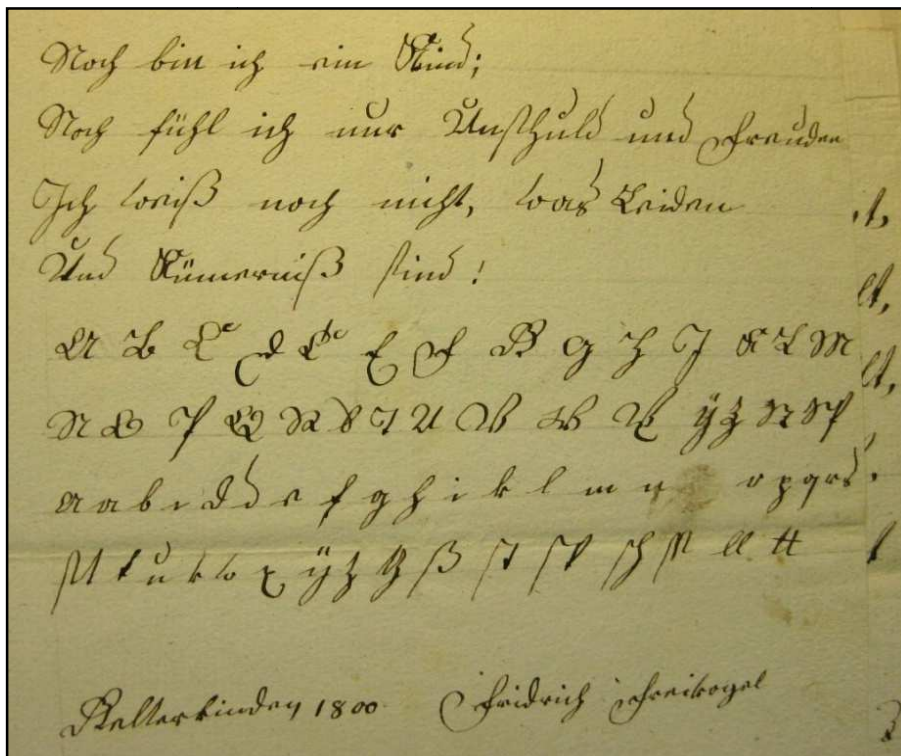 Noch bin ich ein Kind;
Noch fühl ich nur Unschuld und Freuden
Ich weiß noch nicht, was Leiden
Und Kümerniß sind!
A B C D E F G H I K L M
N O P Q R S T U V W X ÿ Z St Sp
a a b c d d e f g h i k l m n o p q r s
ß t u v w x ÿ z tz ß st sp sch st ll tt
Gelterkinden 1800 Fridrich Freivogel